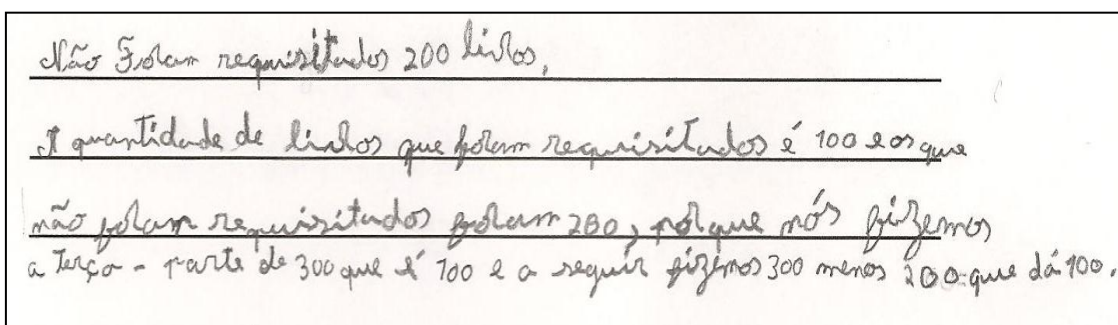 Não Foram requisitados 200 livros.
A quantidade de livros que foram requisitados é 100 e os que
não foram requisitados foram 200, porque nós fizemos
a terça-parte de 300 que é 100 e a seguir fizemos 300 menos 200 que dá 100.